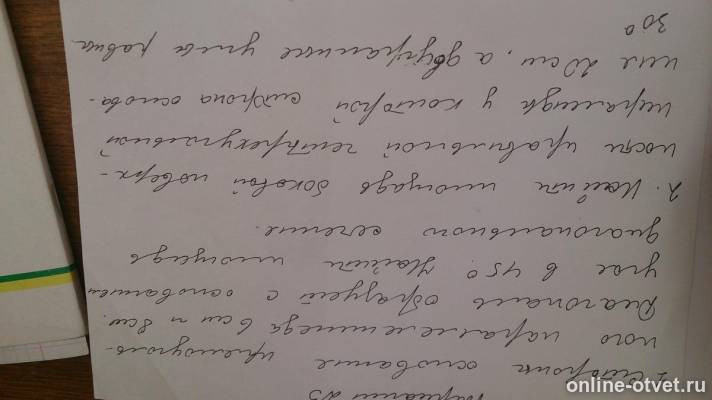 Вариант 23
1. Стороны основание прямоуголь-
ного паралелепипеда 6 см и 8 см.
Диагональ образует с основанием
угол в 45°. Найти площадь
диагонального сечение.
2. Найти площадь боковой поверх-
ности правильной четырехугольной
пирамиды у которой сторона основа-
ние 20 см, а двугранные углы равны
30°
online-otvet.ru